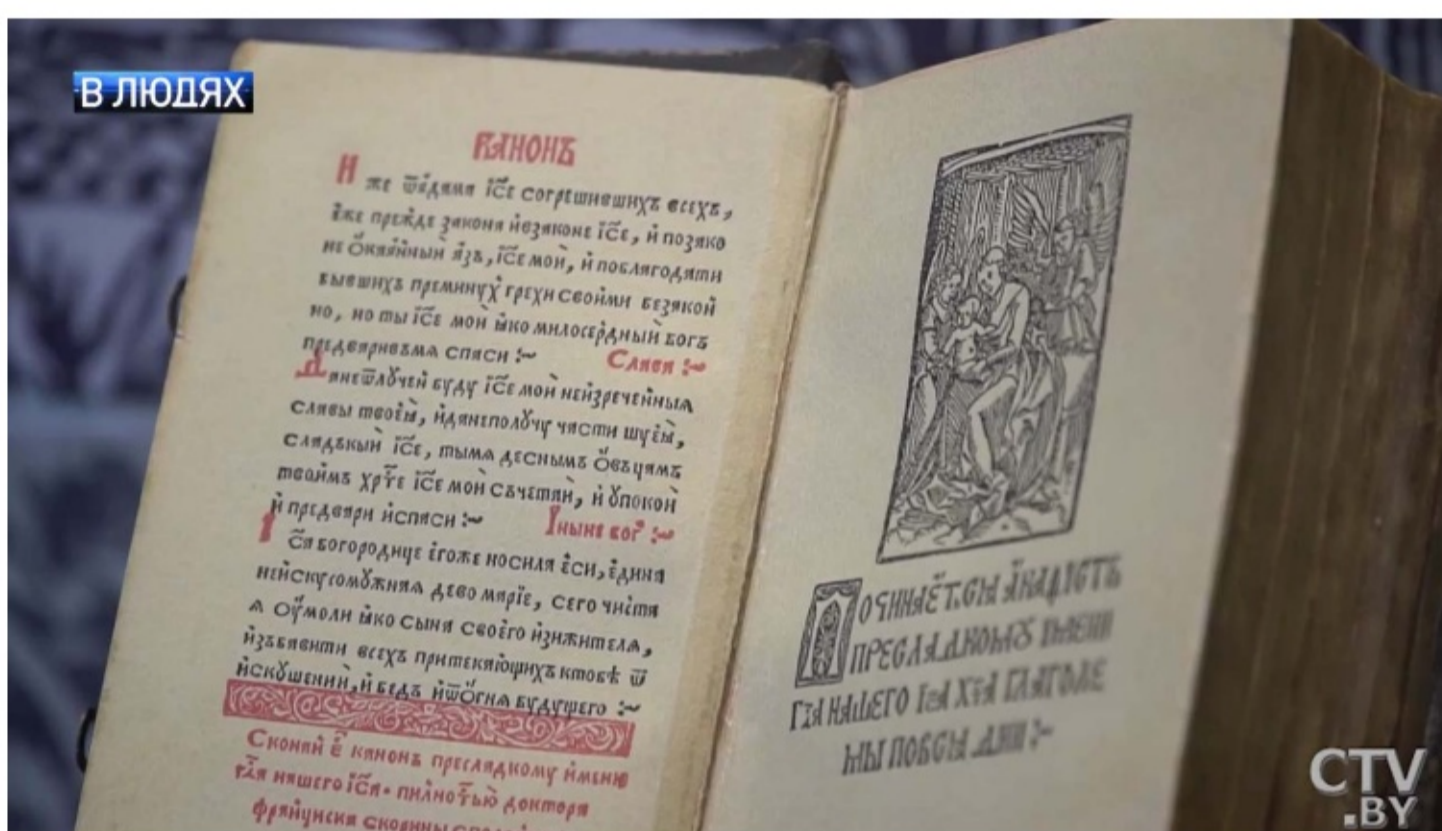 В ЛЮДЯХ
КАНОНЪ
Иже ѿа́дама і҃се согрешившихъ всехъ,
е́же прежде закона и҆взаконе і҃се, и҆ позако
не ѻ҆кая́нный а҆зъ, і҃се мой, и҆ поблагодати
бывших преминух грехи своими безакон
но, но ты і҃се мой ꙗко милосердный богъ
предваривъмѧ спаси :~ Слава :~
Данеѿлꙋчен буду і҃се мой неизреченныѧ
славы твоеѧ, и҆данеполꙋчу части шуеѧ,
сладъкый і҃се, тымѧ десным ѻ҆вьцамъ
твоимъ хр҃те і҃се мой съчетай, и҆ ꙋпокой
и҆ предвари и҆спаси :~ Іныне бог :~
І҃сꙗ богородице е҆гоже носила е҆си, е҆дина
неискусомꙋжнаꙗ дево марїе, сего чиста
ꙗ ѹ҆моли ꙗко сына своего и҆зижителѧ,
и҆зъбавити всехъ притекающихъ ктобѣ ѿ
и҆скꙋшений, и҆ бедъ и҆ѿѻгнѧ будущего :~
Сконаӥ е҆ канонъ пресладкому и҆мению
г҃а нашего і҃са. пилностью доктора
франциска скорины
Починает.сꙗ а҆каѳистъ
пресладкомꙋ имени
г҃а нашего і҃са х҃а глаголе
мы повсꙗ дни :~
CTV
.BY